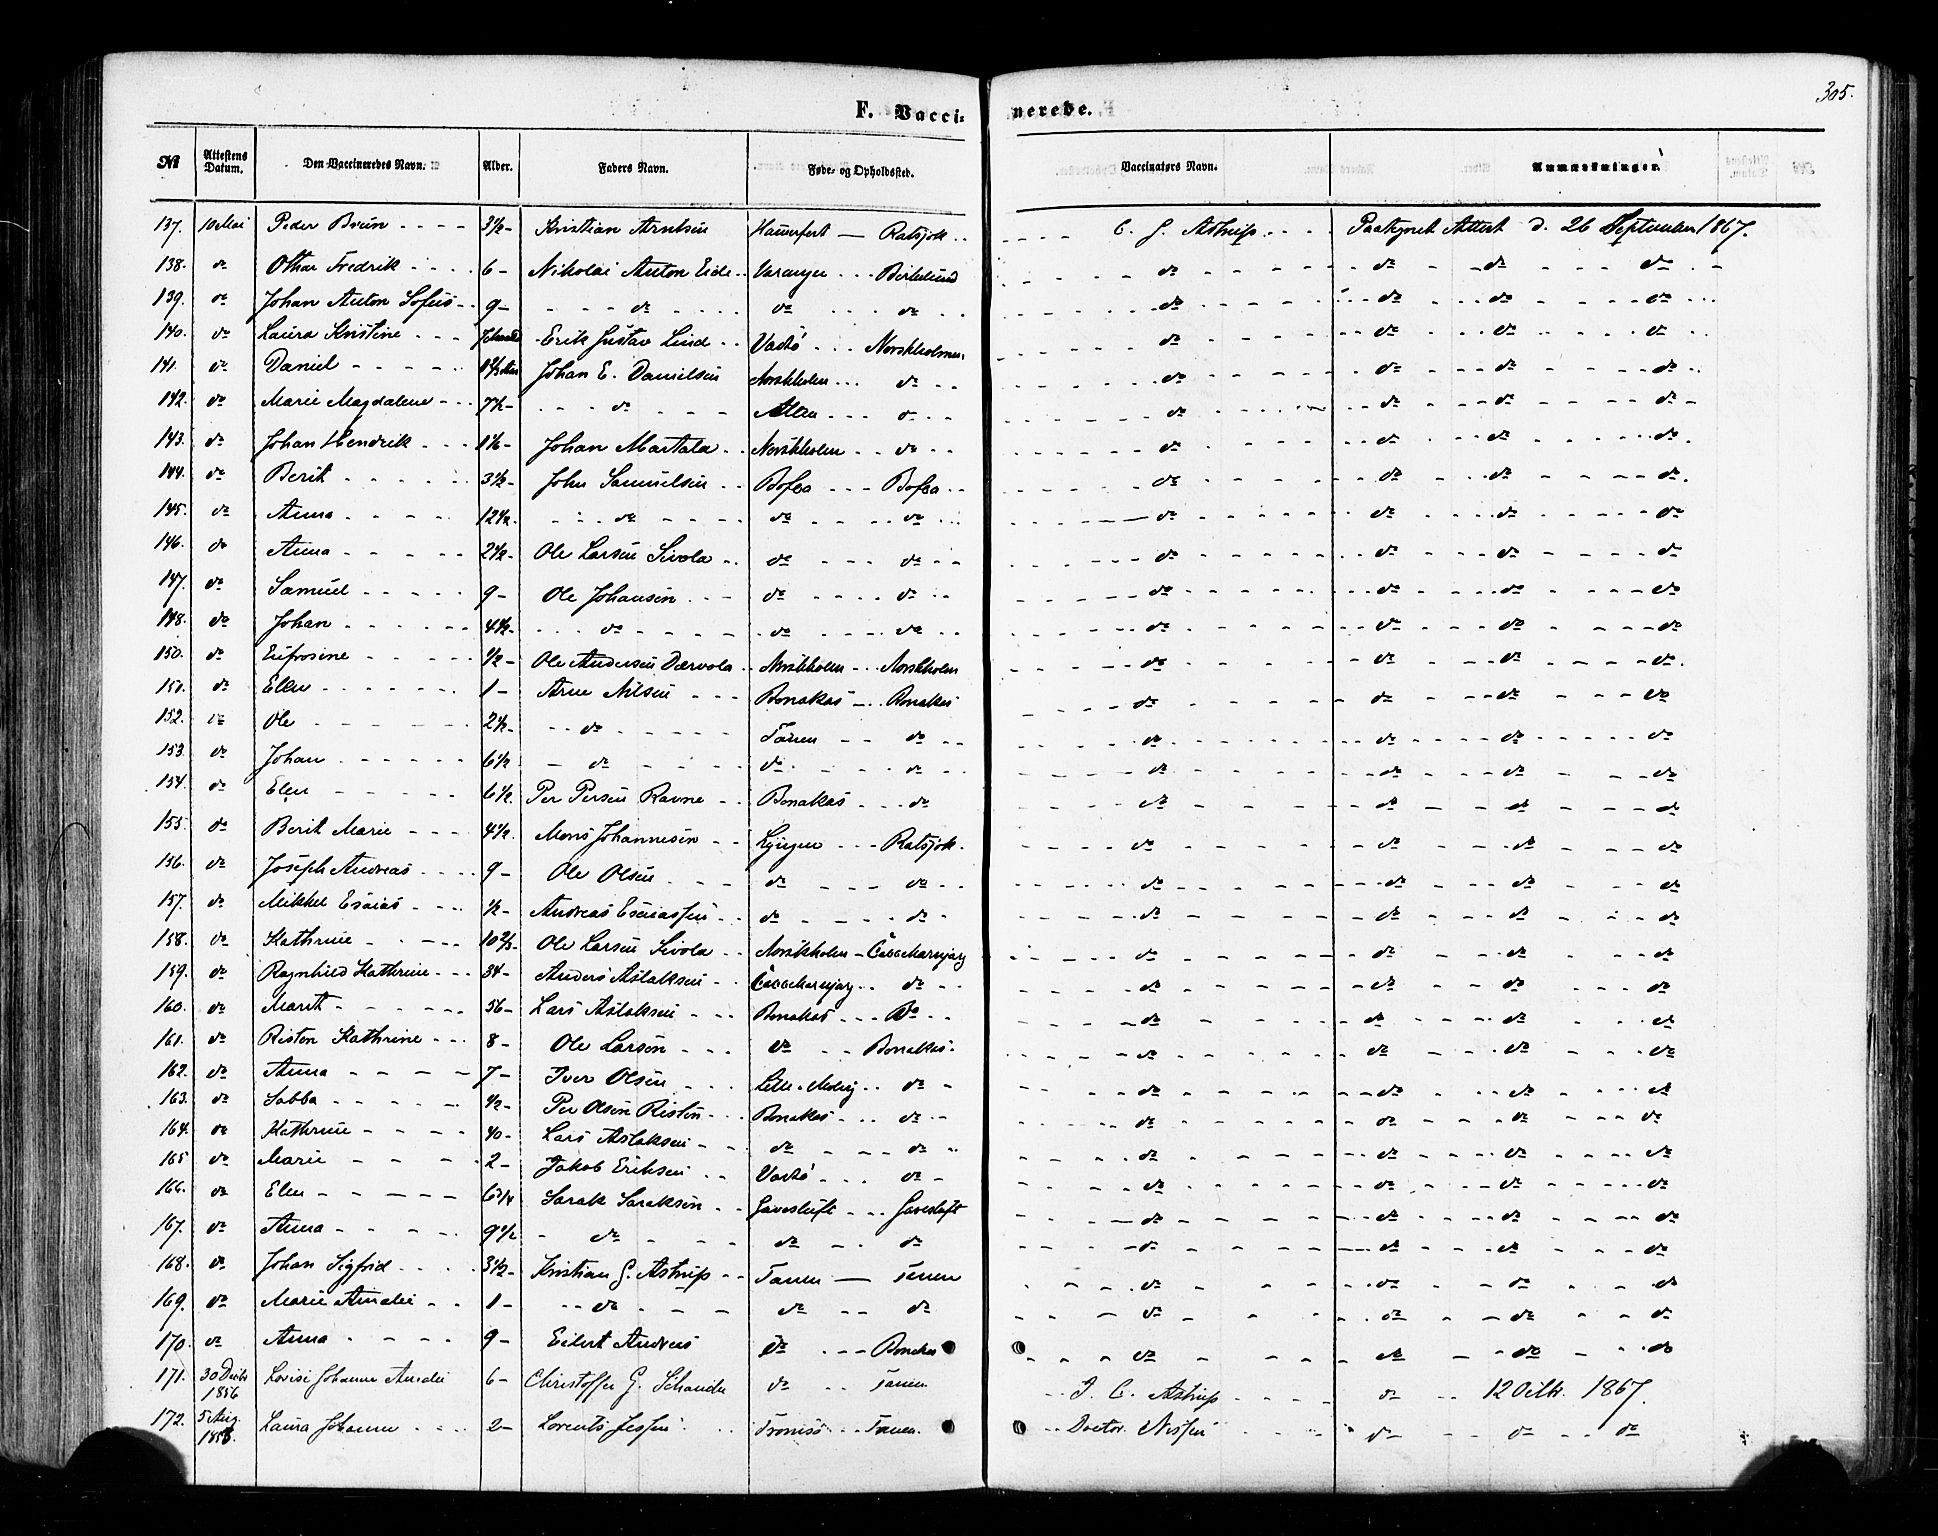 305.
F. Vaccinerede.
№ Attestens Datum. Den Vaccineredes Navn. Alder. Faders Navn. Føde- og Opholdssted. Vaccinatørs Navn. Anmærkninger.
137. 10 Mai Peder Bruun 3 1/2 - Kristian Arntsen Hammerfest - Ratsjok C. G. Astrup Paategnet Attest d. 26 September 1867.
138. do Othar Fredrik 6 - Nikolai Anton Eide Varanger Birkelund do do do do
139. do Johan Anton Sofus 9 - do do do do do do do
140. do Laura Kristine Erik Gustav Lind Vadsö Norskholmen do do do do
141. do Daniel Johan E. Danielsen Norskholm do do do do do
142. do Marie Magdalene 7 1/2 - do Alten do do do do do
143. do Johan Hendrik Johan Martala Norskholm do do do do do
144. do Berit 3 1/2 - John Samuelsen Bofca Bofca do do do do
145. do Anna 12 1/2 - do do do do do do do
146. do Anna 2 1/2 - Ole Larsen Sivola do do do do do do
147. do Samuel 9 - Ole Johansen do do do do do do
148. do Johan 4 1/2 - do do do do do do do
150. do Eufrosine 1/2 - Ole Andersen Dærvola Norskholm Norskholm do do do do
151. do Ellen 1 - Arne Nilsen Bonakas Bonakas do do do do
152. do Ole 2 1/2 - do Tanen do do do do do
153. do Johan 6 1/2 do do do do do do do
154. do Elen 6 1/2 Per Persen Ravne Bonakas do do do do do
155. do Berit Marie 4 1/2 Mons Johannesen Lyngen Ratsjok do do do do
156. do Joseph Andreas 9 - Ole Olsen do do do do do do
157. do Mikkel Esaias 1/2 - Andreas Esaiassen do do do do do do
158. do Kathrine 10 2/3 - Ole Larsen Sivola Norskholm - do do do do
159. do Ragnhild Kathrine 34 - Anders Aslaksen do do do do do
160. do Marit 56 - Lars Aslaksen Bonakas Do do do do do
161. do Risten Kathrine 8 - Ole Larsen do Bonakas do do do do
162. do Anna 7 - Iver Olsen do do do do do
163. do Sabba 1/2 - Per Olsen Risten Bonakas do do do do do
164. do Kathrine 40 - Lars Aslaksen do do do do do do
165 do Marie 2 - Jakob Eriksen Vadsö do do do do do
166. do Elen 6 3/4 Sarak Saraksen Gavesluft Gavesluft do do do do
167. do Anna 9 1/2 do do do do do do do
168. do Johan Sigfrid 3 1/2 - Kristian G. Astrup Tanen - Tanen do do do do
169. do Marie Amalie 1 - do do do do do do do
170. do Anna 9 - Eilert Andreas do Bonakas do do do do
171. 30 Decbr 1856 Lovise Johanne Amalie 6 - Christoffer G. Schanche do Tanen J. C. Astrup do 12 Octbr. 1867.
172. 5 Aug. Laura Johanne 2 - Lorents Jessen Tromsö Tanen. Doctor Nissen do do do